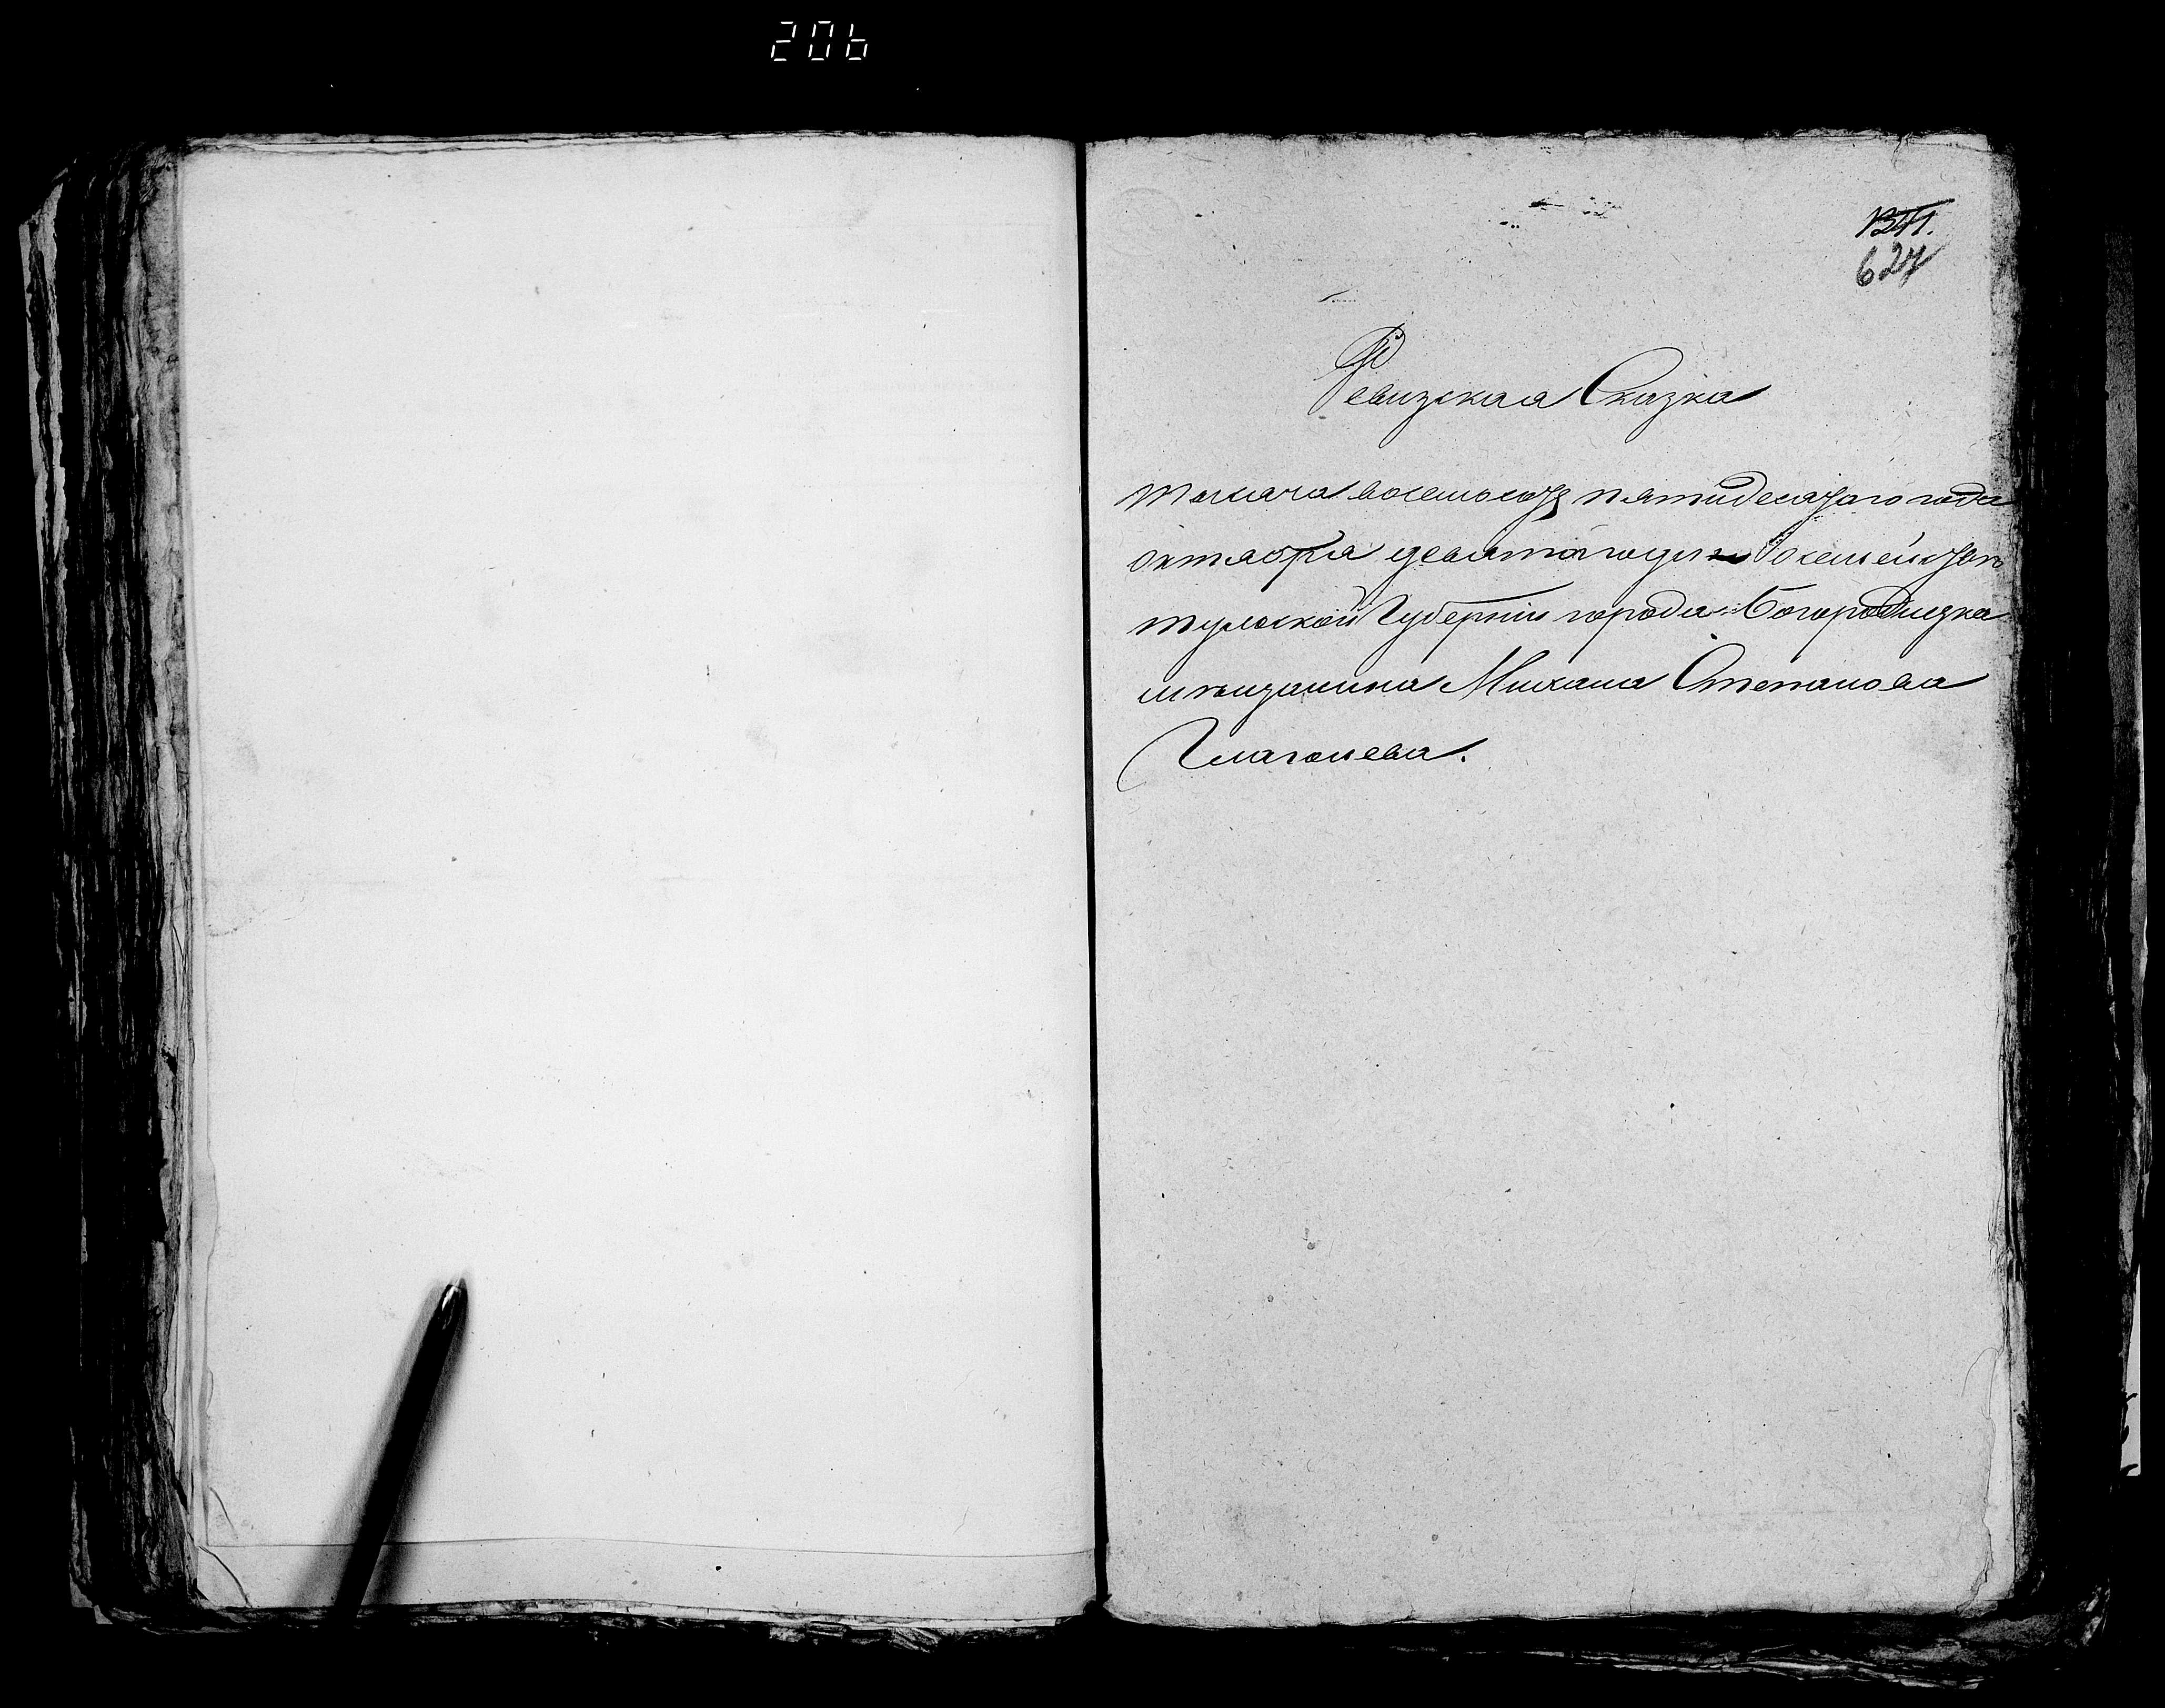 206
1341.
627
Ревизская Сказка
тысяча восемьсотъ пятидесятого года
октября девятого дня
тульской Губернiи города Богородицка
мѣщанина Михаила Степанова
Глаголева.